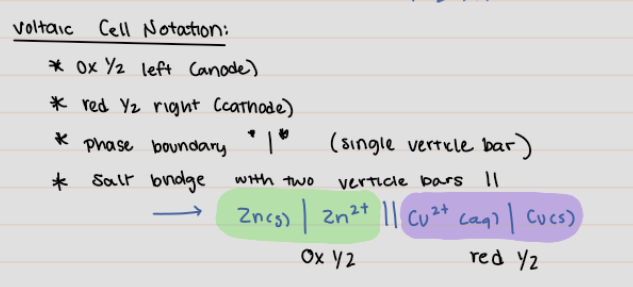 Voltaic Cell Notation:
* Ox 1/2 left (anode)
* red 1/2 right (cathode)
* phase boundary "|" (single verticle bar)
* Salt bridge with two verticle bars ||
→ Zn(s) | Zn²⁺ || Cu²⁺ (aq) | Cu(s)
Ox 1/2 red 1/2